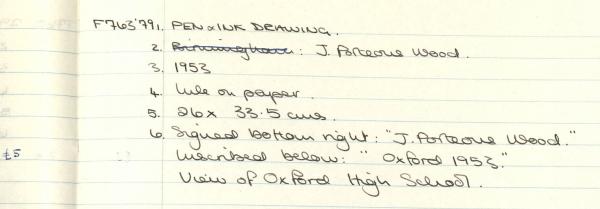 F763'79. 1. PEN & INK DRAWING.
2. Birmingham: J. Porteous Wood.
3. 1953
4. Ink on paper.
5. 26 x 33.5 cms.
6. Signed bottom right: "J. Porteous Wood."
£5 Inscribed below: "Oxford 1953."
View of Oxford High School.